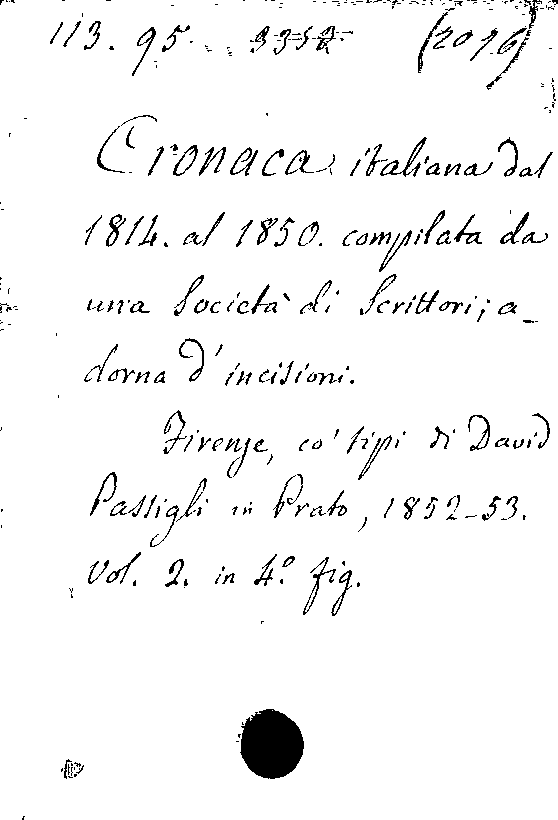 113. 95. 3352 (2016)
Cronaca italiana dal
1814. al 1850. compilata da
una Società di Scrittori; a_
dorna d'incisioni.
Firenze, co' tipi di David
Passigli in Prato, 1852-53.
Vol. 2. in 4.º fig.